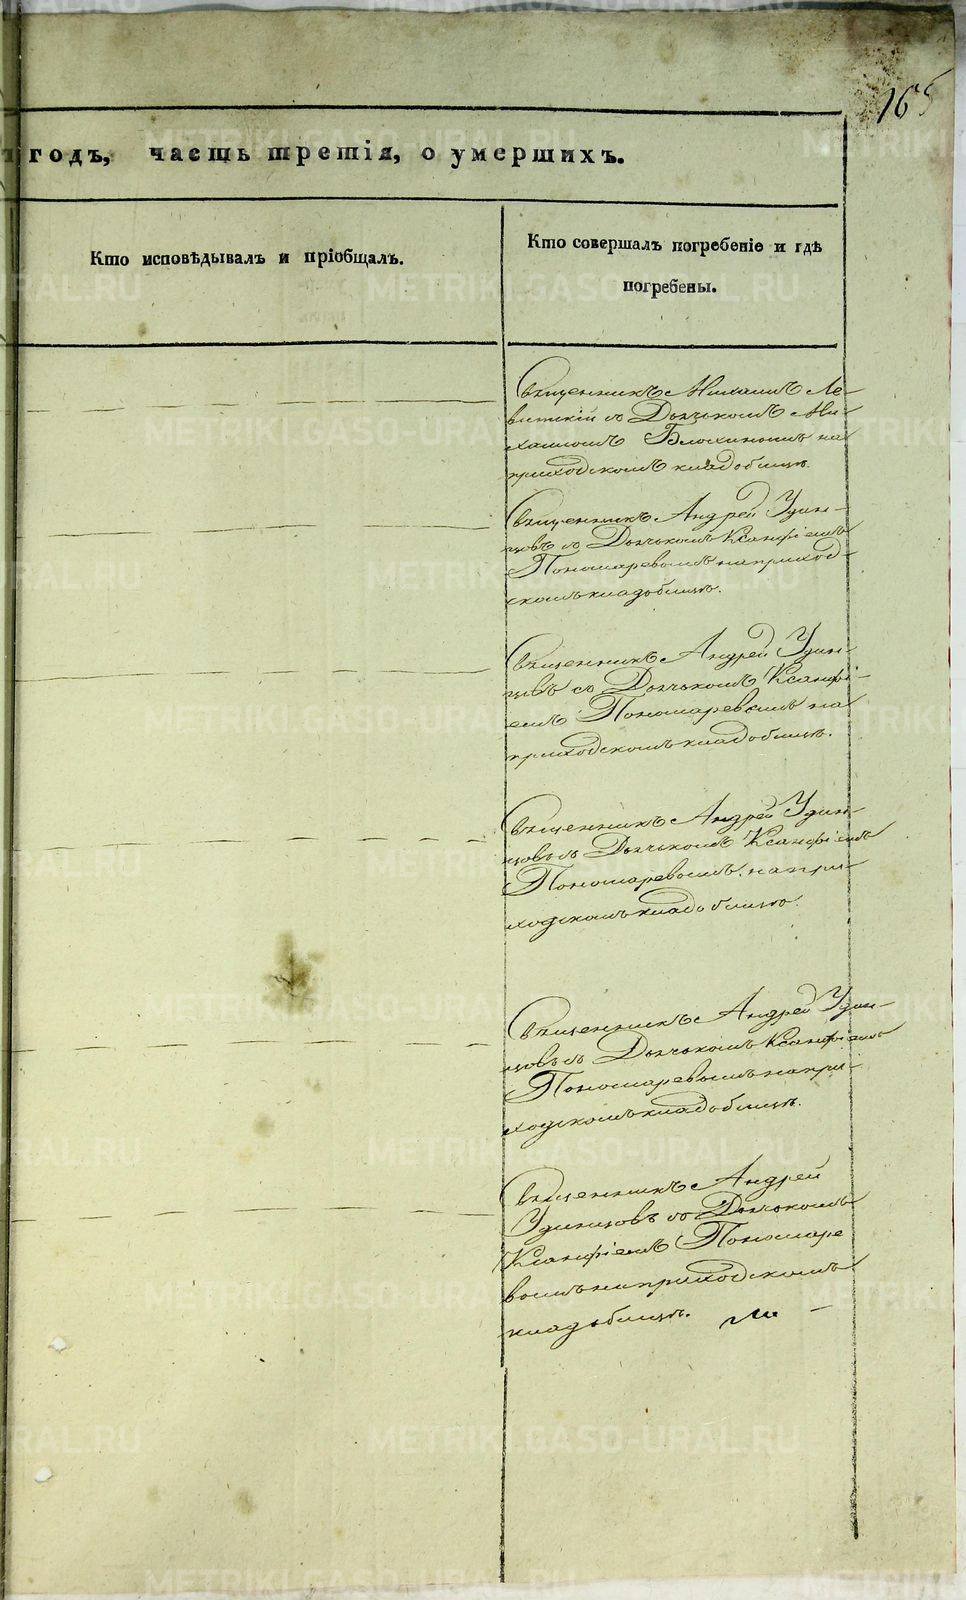 165
годъ, часть третія, о умершихъ.
Кто исповѣдывалъ и пріобщалъ.
Кто совершалъ погребеніе и гдѣ
погребены.
Священникъ Михаилъ Ле-
витскій съ Дьячькомъ Ми-
хаиломъ Блохиномъ на
приходскомъ кладбищѣ.
Священникъ Андрей Удин-
цовъ съ Дьячькомъ Ксанфіемъ
Пономаревымъ на приход-
скомъ кладбищѣ.
Священникъ Андрей Удин-
цовъ съ Дьячькомъ Ксанфі-
емъ Пономаревымъ на
приходскомъ кладбищѣ.
Священникъ Андрей Удин-
цовъ съ Дьячькомъ Ксанфіемъ
Пономаревымъ на при-
ходскомъ кладбищѣ.
Священникъ Андрей Удин-
цовъ съ Дьячькомъ Ксанфіемъ
Пономаревымъ на при-
ходскомъ кладбищѣ.
Священникъ Андрей
Удинцовъ съ Дьячькомъ
Ксанфіемъ Пономаре
вымъ на приходскомъ
кладбищѣ.
METRIKI.GASO-URAL.RU